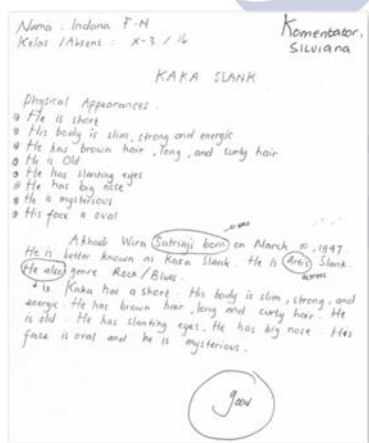 Nama : Indana F.N
Kelas / Absent : X-3 / 16
Komentator,
SILVIANA
KAKA SLANK
Physical Appearances.
He is short
His body is slim, strong and energic
He has brown hair, long, and curly hair
He is Old
He has slanting eyes
He has big nose
He is mysterious
His face is oval
was
Akhadi Wira Satriaji born on March 10, 1947.
He is better known as Kaka Slank. He is Artis Slank.
He also genre Rock / Blues.
is Kaka has a short. His body is slim, strong, and
energic. He has brown hair, long and curly hair. He
is old. He has slanting eyes. He has big nose. His
face is oval and he is mysterious.
good